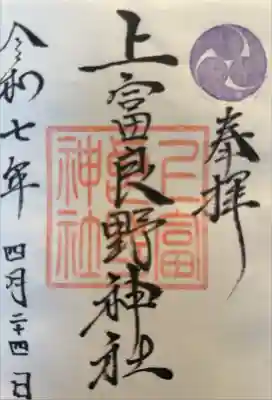 奉拝
上富良野神社
上富良野神社
令和七年 四月二十四日